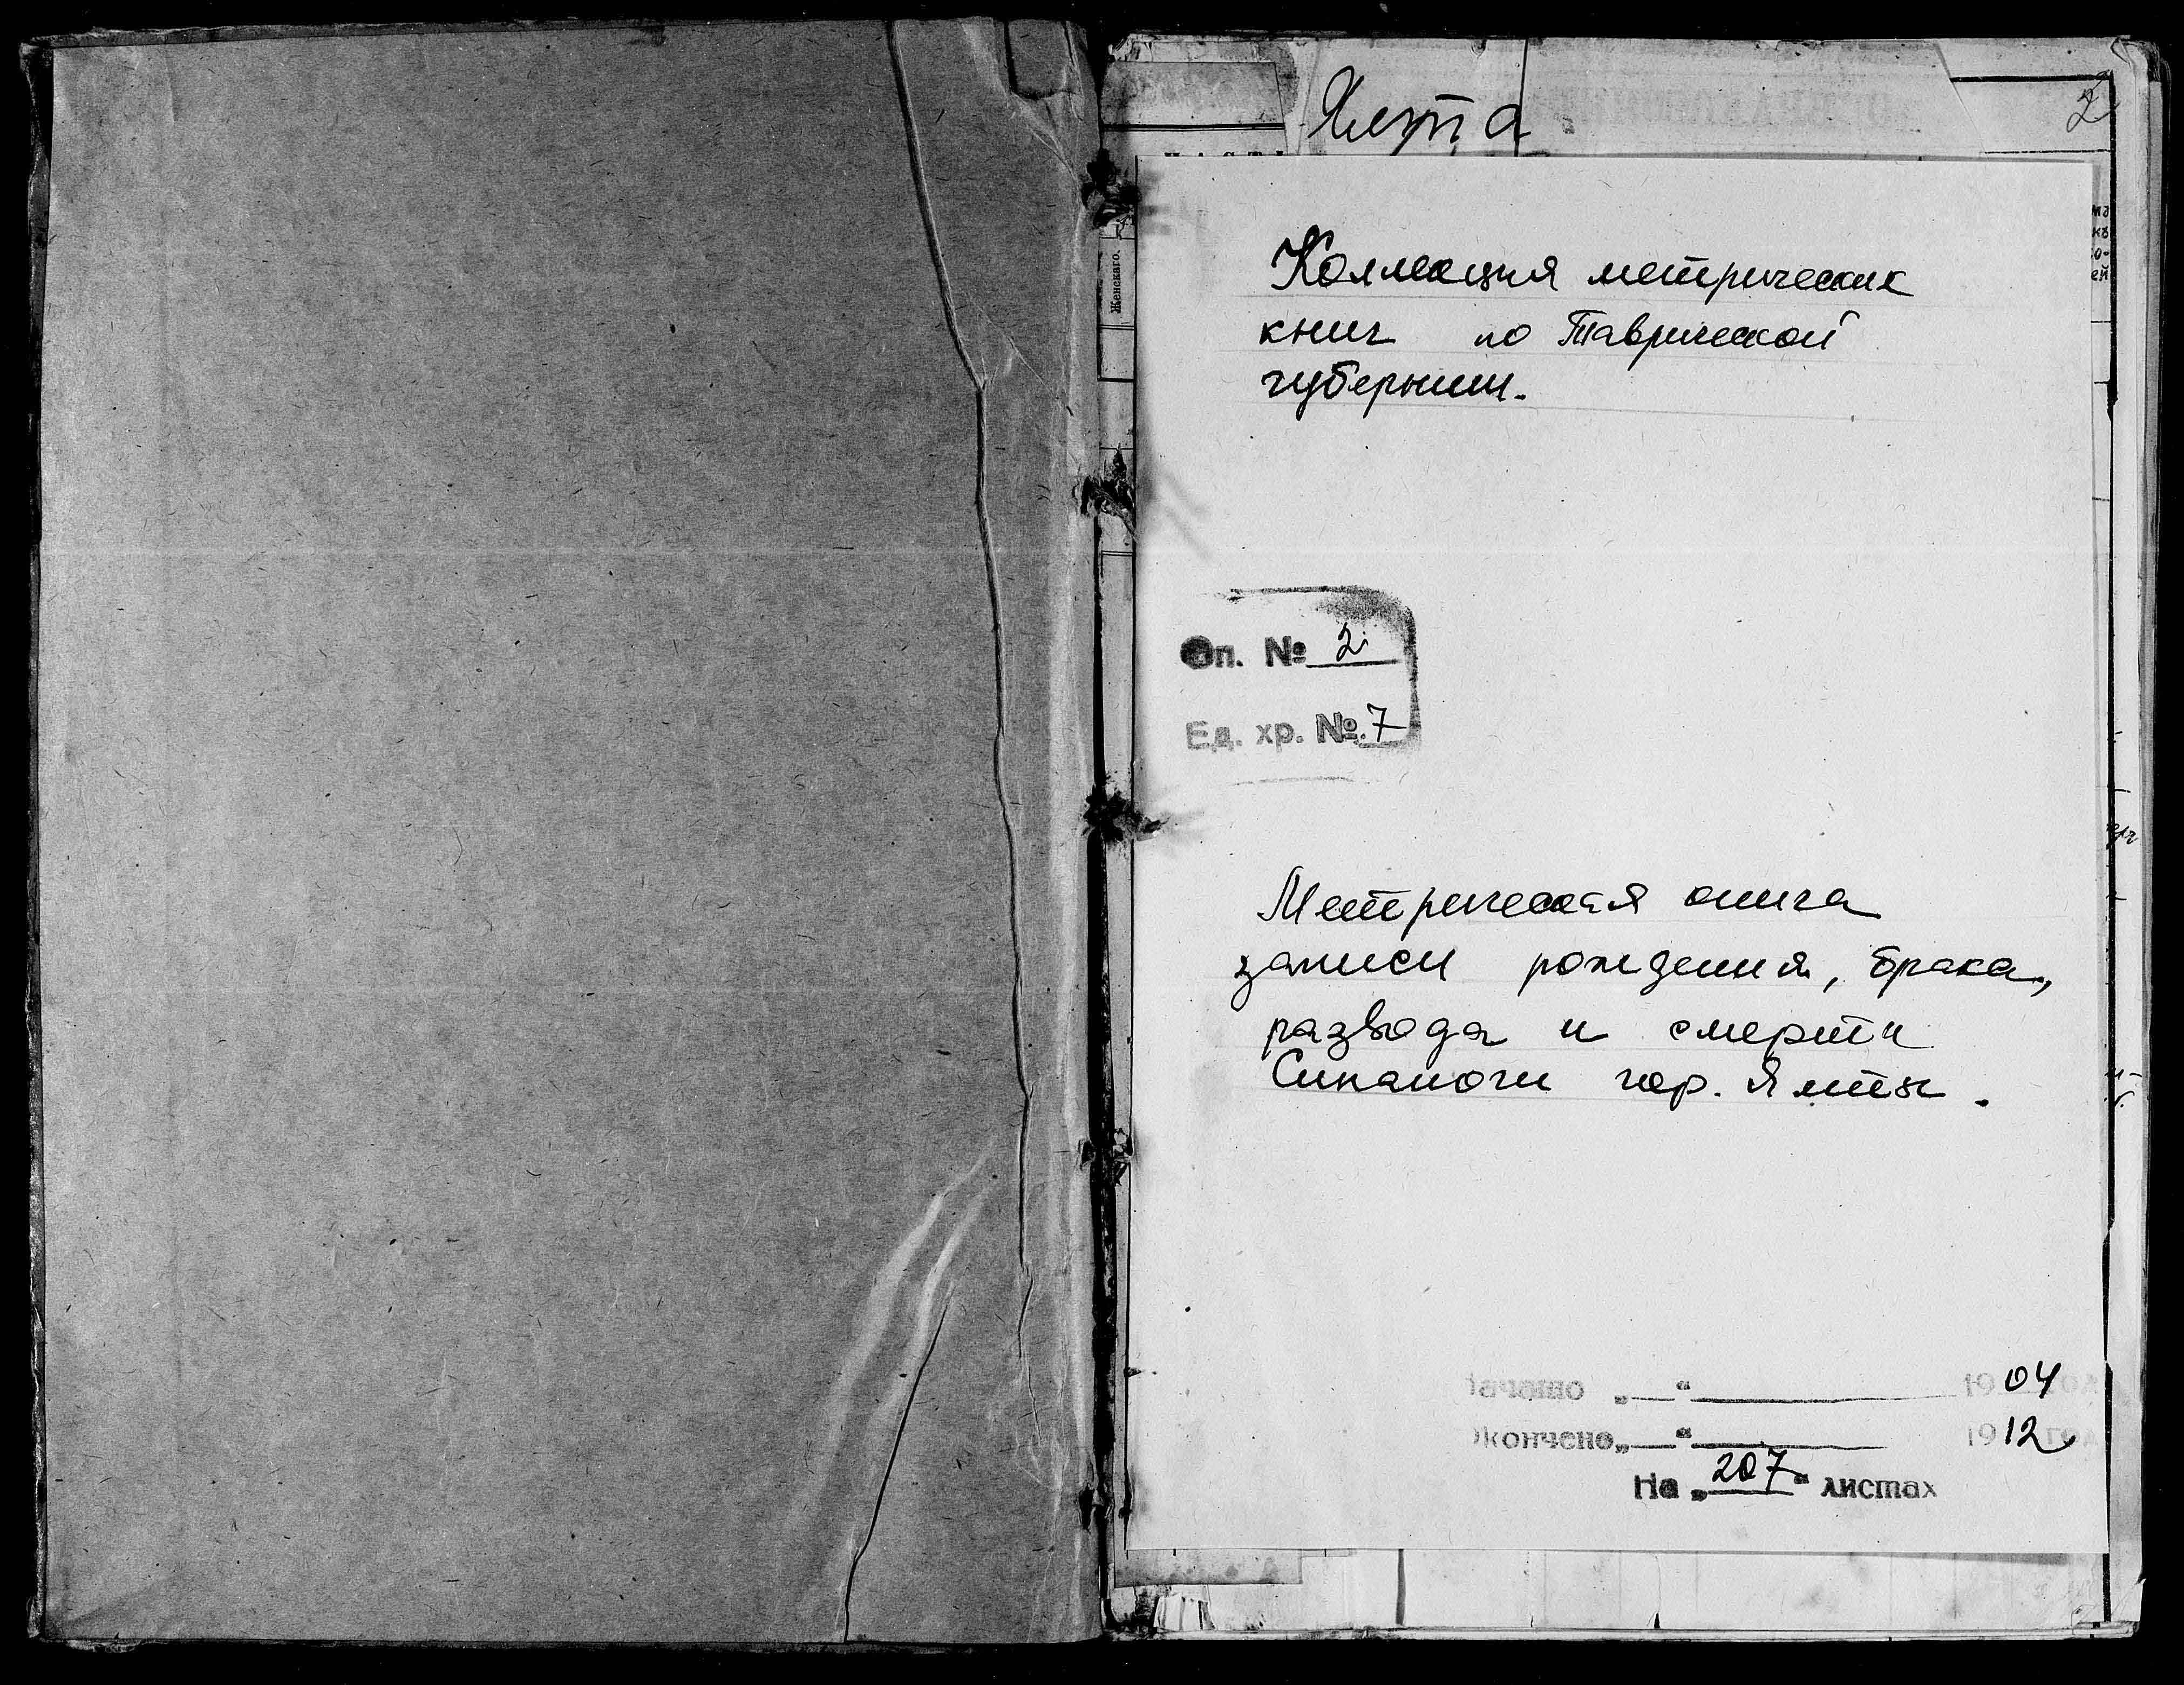 Ялта
2
Женскаго.
Коллекция метрических
книг по Таврической
губернии.
Оп. № 2
Ед. хр. № 7
Метрическая книга
записи рождения, брака,
развода и смерти
Синагоги гор. Ялты.
Начато „ “ 1904 год
Окончено „ “ 1912 год
На „207“ листах